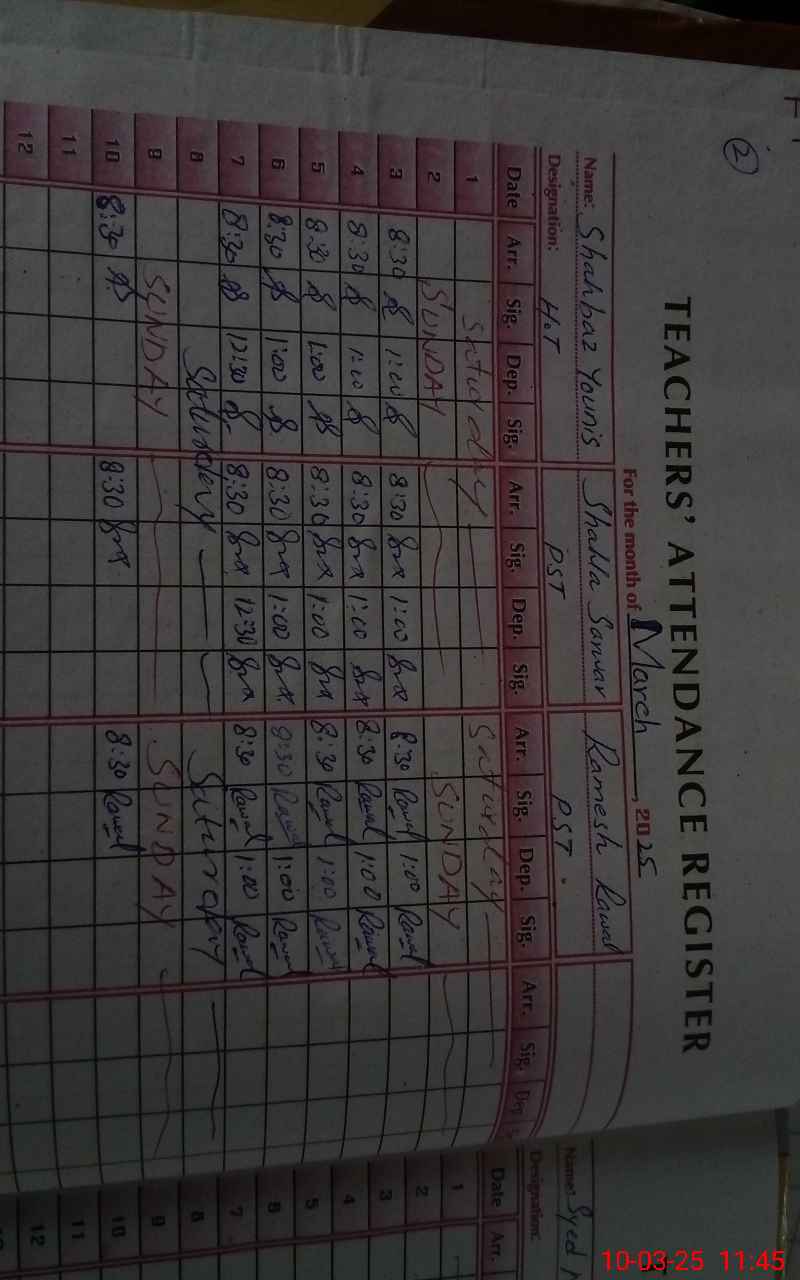 2
TEACHERS' ATTENDANCE REGISTER
For the month of March, 2025
Name: Shahbaz Younis Shahla Sarwar Ramesh Rawal
Designation: H.T PST PST
Date Arr. Sig. Dep. Sig. Arr. Sig. Dep. Sig. Arr. Sig. Dep. Sig. Arr. Sig. Dep
1 Saturday Saturday
2 SUNDAY SUNDAY
3 8:30 1:00 8:30 1:00 8:30 Rawal 1:00 Rawal
4 8:30 1:00 8:30 1:00 8:30 Rawal 1:00 Rawal
5 8:30 1:00 8:30 1:00 8:30 Rawal 1:00 Rawal
6 8:30 1:00 8:30 1:00 8:30 Rawal 1:00 Rawal
7 8:30 12:30 8:30 12:30 8:30 Rawal 1:00 Rawal
8 Saturday Saturday
9 SUNDAY SUNDAY
10 8:30 8:30 8:30 Rawal
11
12
Name: Syed
Designation:
Date Arr.
1
2
3
4
5
6
7
8
9
10
11
12
10-03-25 11:45